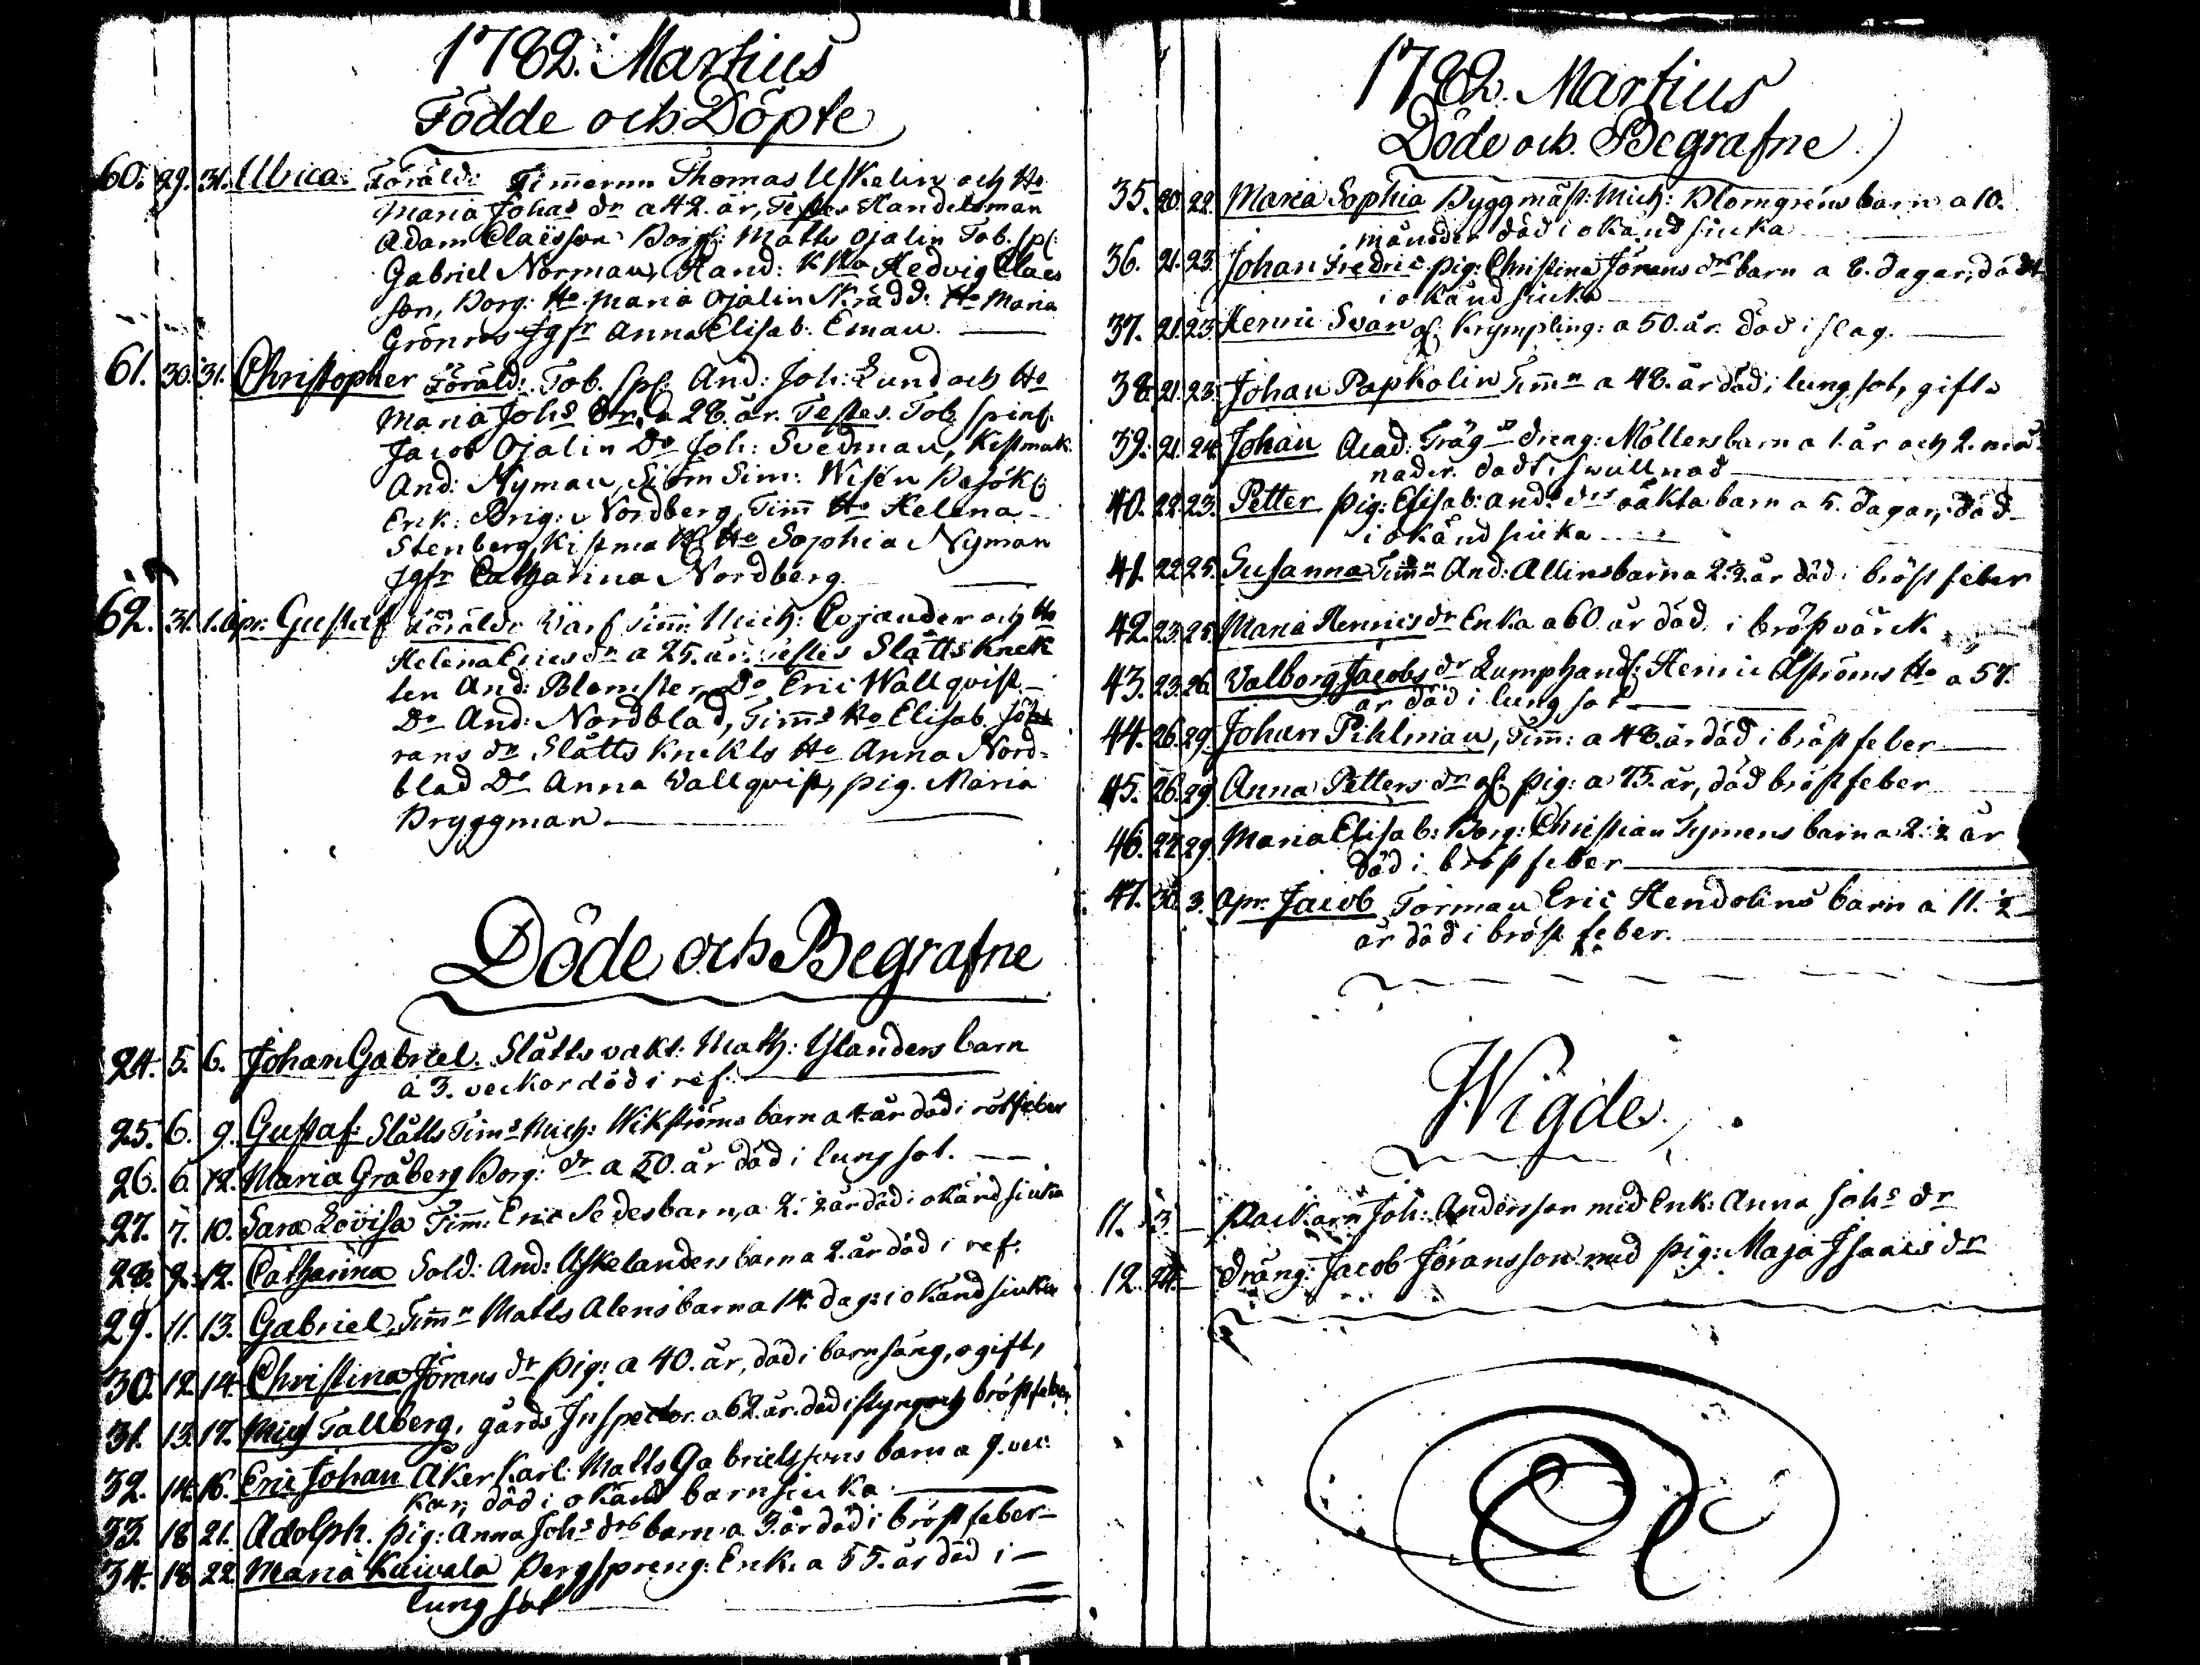 1782. Martius
Födde och Döpte
60. 29. 31. Ulrica. Föräld: Timermn Thomas Uskelin och Ho
Maria Johas dr a 42. år, Testes Handelsman
Adam Claësson Borg: Matts Ojalin Tob. sp:
Gabriel Norman, Hand: Ho Hedvig Claes
son, Borg: Ho Maria Ojalin Skrädd: Ho Maria
Grönros Jgfr Anna Elisab: Eman.
61. 30. 31. Christopher Föräld: Tob. sp: And: Joh: Lund och Ho
Maria Johs dr. a 28. år. Testes. Tob. spin:
Jacob Ojalin Do Joh: Svedman, Kistmak.
And: Nyman, Sim: Wisén Besök:
Erik: Brig: Nordberg, Tim Ho Helena
Stenberg, Kistmak Ho Sophia Nyman
Jgfr Catharina Nordberg
62. 31. 1. Apr. Gustaf Föräld: Varf Tim: Mich: Cojander och Ho
Helena Erics dr a 25. år. Testes Slåtts Knek
ten And: Blomster, Do Eric Wallqvist
Do And: Nordblad, Tims Ho Elisab. Jö
rans dr Slåtts Knekts Ho Anna Nord=
blad Do Anna Vallqvist, pig. Maria
Bryggman
Döde och Begrafne
24. 5. 6. Johan Gabriel. Slåtts vakt: Math: Ylanders barn
a 3. veckor död i ref:
25. 6. 9. Gustaf: Slåtts Tims Mich: Wikströms barn a 4. år död i rötfeber
26. 6. 12. Maria Gråberg Borg: dr a 50. år död i lungsot.
27. 7. 10. Sara Lovisa Tim: Eric Sedes barn, a 2. ½ år död i okänd siuka
28. 9. 12. Catharina Sold: And: Uskelanders barn a 2. år död i ref.
29. 11. 13. Gabriel, Timn Matts Alens barn a 14. dag: i okänd siuka
30. 12. 14. Christina Jörans dr pig: a 40. år, död i barnsäng, ogift,
31. 13. 17. Mich Tallberg, gårds Inspector. a 62. år. död i styng och bröstfeber
32. 14. 16. Eric Johan Åker karl: Matts Gabrielssons barn a 9. vec:
kor, död i okänd barnsiuka
33. 18. 21. Adolph. pig: Anna Johs drs barn a 3. år död i bröstfeber
34. 18. 22. Maria Kuivala Bergspreng: Enk. a 55. år död i
lungsot
1782. Martius
Döde och Begrafne
35. 20. 22. Maria Sophia Byggmäst: Mich: Blomgréns barn a 10.
månader död i okänd siuka
36. 21. 23. Johan Fredric pig: Christina Jörans drs barn a 8. dagar, död
i okänd siuka
37. 21. 23. Henric Svan gf: Krympling: a 50. år. död i slag.
38. 21. 23. Johan Papkolin Timn a 48. år död i lungsot, gift
39. 21. 24. Johan Acad: Trägs dreng: Möllers barn a 1. år och 2. må
nader. död i svullnad
40. 22. 23. Petter pig: Elisab: And: drs oäkta barn a 5. dagar, död
i okänd siuka
41. 22. 25. Susanna Timn And: Allins barn a 2. ½ år död i bröst feber
42. 23. 25. Maria Henrics dr Enka a 60 år död i bröst värck
43. 23. 26. Valborg Jacobs dr Lumphand: Henric Åströms Ho a 57.
år död i lungsot
44. 26. 29. Johan Pihlman, Tim: a 48. år död i bröst feber
45. 26. 29. Anna Petters dr gf: pig: a 75. år, död bröstfeber
46. 27. 29. Maria Elisab: Borg: Christian Tymens barn a 2. ½ år
död i bröst feber
47. 30. 3. Apr. Jacob Forman Eric Hendolins barn a 11. ½
år död i bröst feber.
Wigde.
11. 3. Packarn Joh: Andersson med Enk: Anna Johs dr
12. 24. dräng: Jacob Jöransson med pig: Maja Isaacs dr